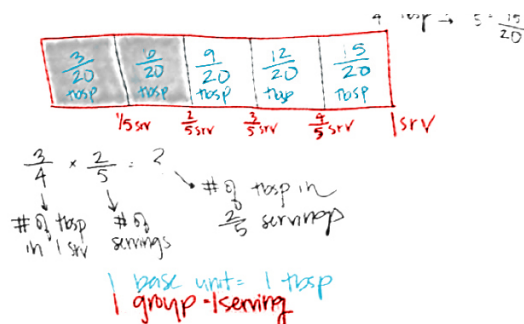 4 tbsp → 5 = 15/20
3/20 tbsp 6/20 tbsp 9/20 tbsp 12/20 tbsp 15/20 tbsp
1/5 srv 2/5 srv 3/5 srv 4/5 srv 1 srv
3/4 × 2/5 = ?
# of tbsp in 1 srv
# of servings
# of tbsp in 2/5 servings
1 base unit = 1 tbsp
1 group = 1 serving